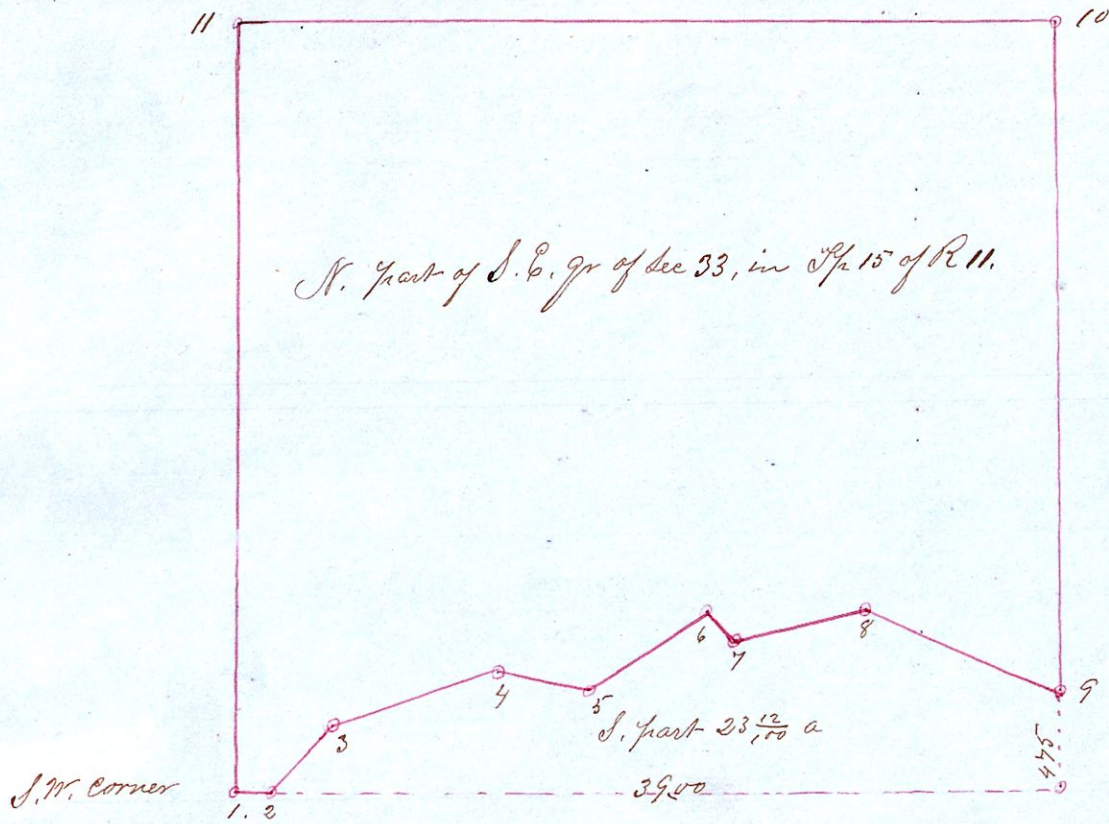 11 10
N. part of S. E. qr of Sec 33, in Tp 15 of R 11.
6
7
8
4
5
9
3
S. part 23 12/100 a
4.75
S.W. Corner
39.00
1. 2